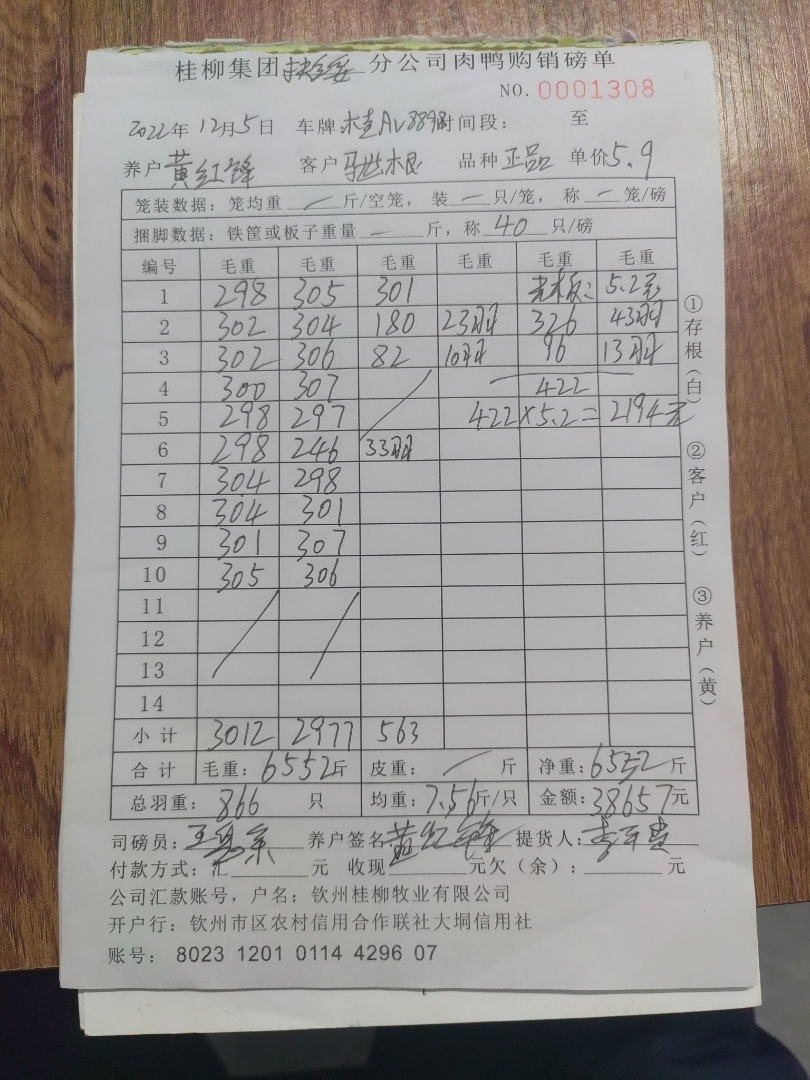 桂柳集团扶绥分公司肉鸭购销磅单
NO. 0001308
2022年12月5日 车牌桂AV889时间段: 至
养户黄红锋 客户马世根 品种正品 单价5.9
笼装数据: 笼均重 — 斤/空笼, 装 — 只/笼, 称 — 笼/磅
捆脚数据: 铁筐或板子重量 — 斤, 称 40 只/磅
编号 毛重 毛重 毛重 毛重 毛重 毛重
1 298 305 301 5.2元
2 302 304 180 23羽 326 43羽
3 302 306 82 10羽 96 13羽
4 300 307 422
5 298 297 422×5.2=2194元
6 298 246 33羽
7 304 298
8 304 301
9 301 307
10 305 306
11
12
13
14
小计 3012 2977 563
合计 毛重: 6552斤 皮重: — 斤 净重: 6552斤
总羽重: 866 只 均重: 7.56斤/只 金额: 38657元
司磅员: 养户签名黄红锋 提货人:
付款方式: 汇 元 收现 元欠(余): 元
公司汇款账号, 户名: 钦州桂柳牧业有限公司
开户行: 钦州市区农村信用合作联社大垌信用社
账号: 8023 1201 0114 4296 07
①存根(白)
②客户(红)
③养户(黄)